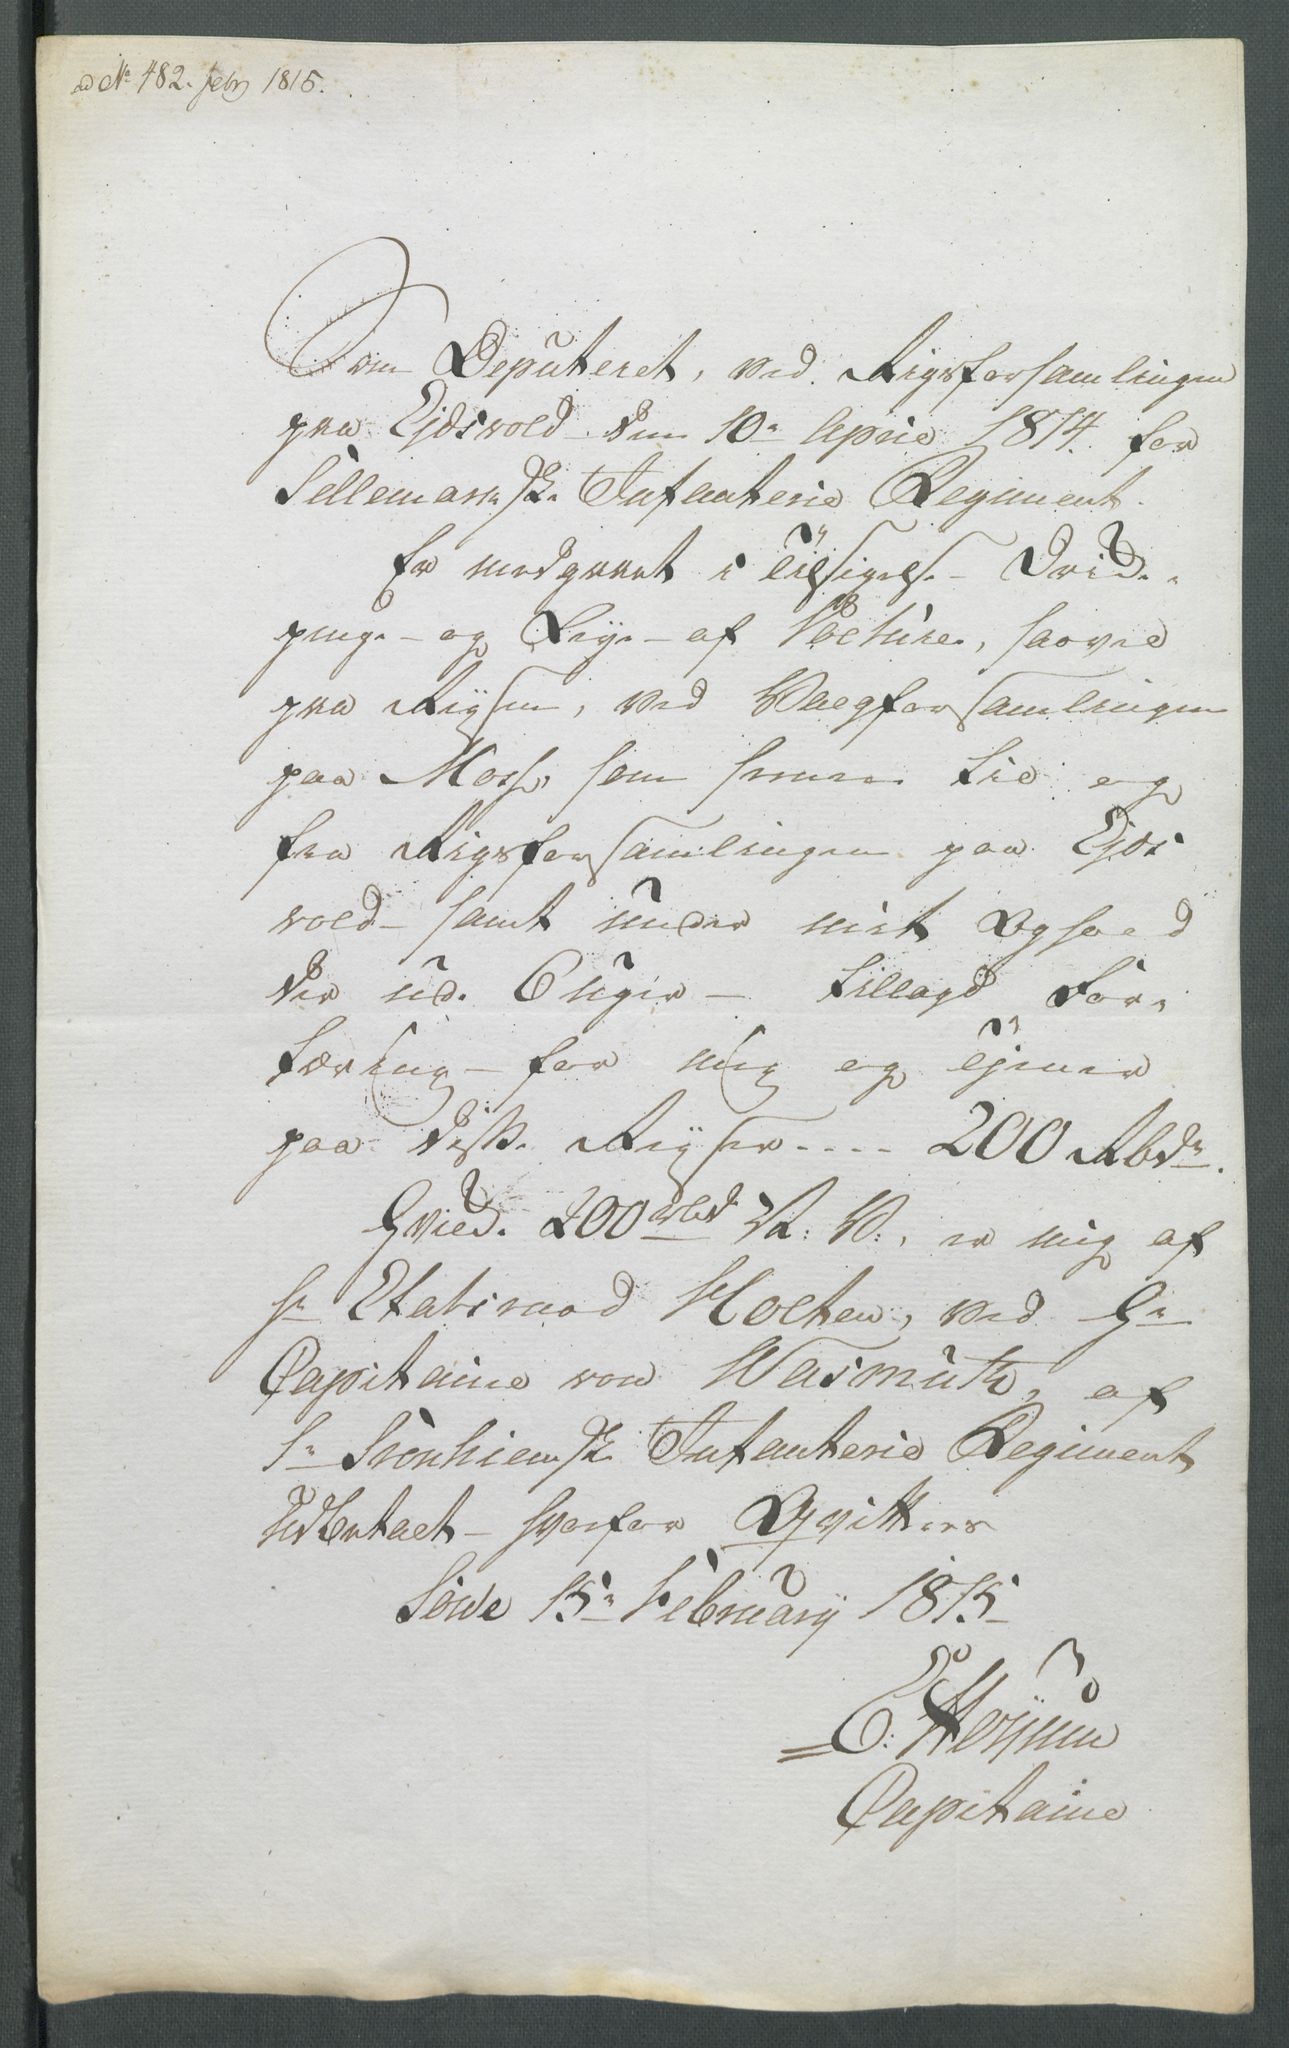 ad No 482. febr 1815.
Som Deputeret, ved Rigsforsamlingen
paa Ejdsvold den 10de April 1814. for
Tellemarkske Infanterie Regiment.
Er medgaaet i Drikke
penge og Leye af Voiture, saavel
paa Rejsen, ved Valgforsamlingen
paa Moss, som senere til og
fra Rigsforsamlingen paa Ejds
vold samt under mit Ophold
der ud. 6 Uger tillagd For
tæring for mig og tjener
paa disse Rejser .... 200 Rbdr.
Hvilke 200 rbd R: V:, er mig af
Hr Etatsraad Holten, ved Hr
Capitaine von Wasmuth, af
1te Tronhiemske Infanterie Regiment
udbetalt hvorfor Qvitteres
Sòwe 15de Februarij 1815
E: Heÿum
Capitaine